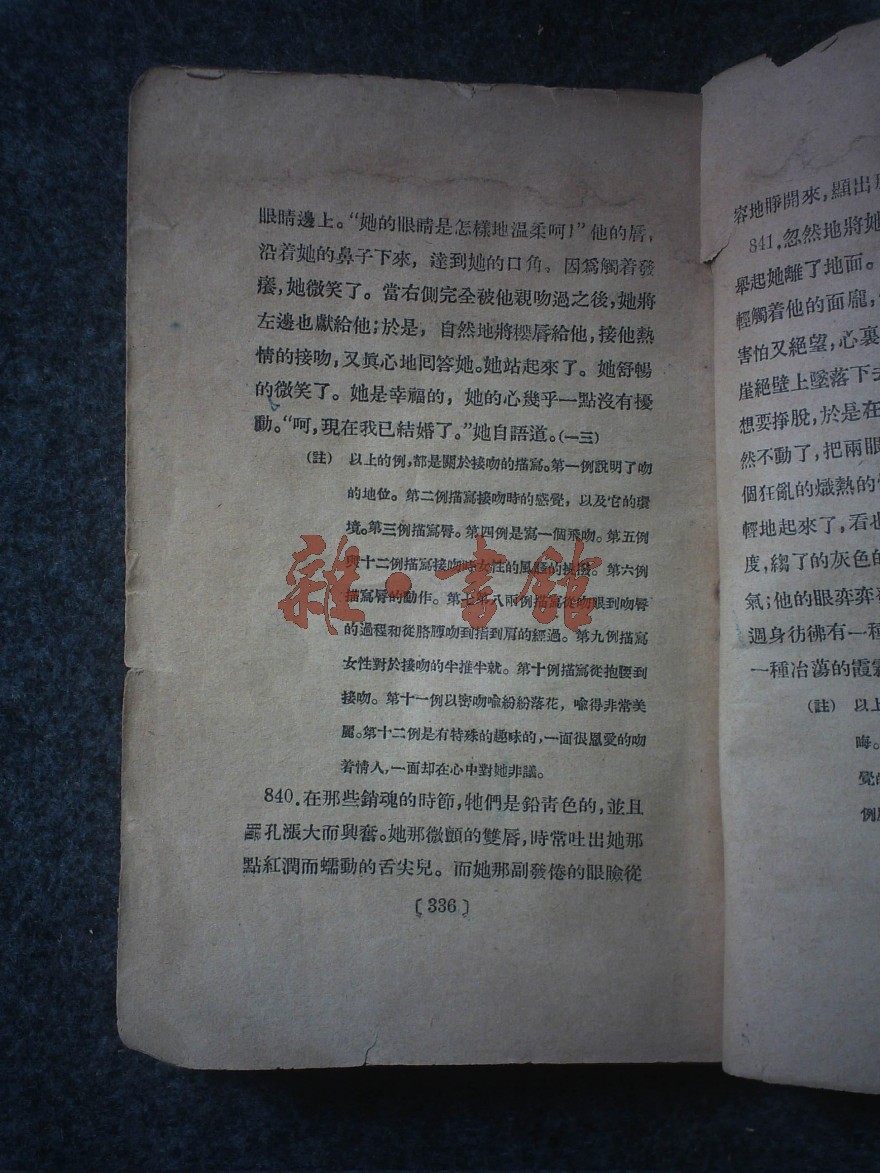 眼睛邊上。“她的眼睛是怎樣地溫柔呵!”他的唇,
沿着她的鼻子下來,達到她的口角。因爲觸着發
癢,她微笑了。當右側完全被他親吻過之後,她將
左邊也獻給他;於是,自然地將櫻唇給他,接他熱
情的接吻,又眞心地回答她。她站起來了。她舒暢
的微笑了。她是幸福的,她的心幾乎一點沒有擾
動。“呵,現在我已結婚了。”她自語道。(一三)
(註) 以上的例,都是關於接吻的描寫。第一例說明了吻
的地位。第二例描寫接吻時的感覺,以及它的環
境。第三例描寫唇。第四例是寫一個飛吻。第五例
與十二例描寫接吻時女性的風騷的挑撥。第六例
描寫唇的動作。第七第八兩例描寫從吻眼到吻唇
的過程和從胳膊吻到指到肩的經過。第九例描寫
女性對於接吻的半推半就。第十例描寫從抱腰到
接吻。第十一例以密吻喩紛紛落花,喩得非常美
麗。第十二例是有特殊的趣味的,一面很恩愛的吻
着情人,一面却在心中對她非議。
840.在那些銷魂的時節,牠們是鉛青色的,並且
孔漲大而興奮。她那微顫的雙唇,時常吐出她那
點紅潤而蠕動的舌尖兒。而她那副發倦的眼瞼從
〔336〕
容地睜開來,顯出
841.忽然地將她
舉起她離了地面。
輕觸着他的面龐,
害怕又絕望,心裏
崖絕壁上墜落下去
想要掙脫,於是在
然不動了,把兩眼
個狂亂的熾熱的
輕地起來了,看也
度,縐了的灰色的
氣;他的眼弈弈
週身彷彿有一種
一種冶蕩的霞
(註) 以上
晦。
覺的
例
雜·書館